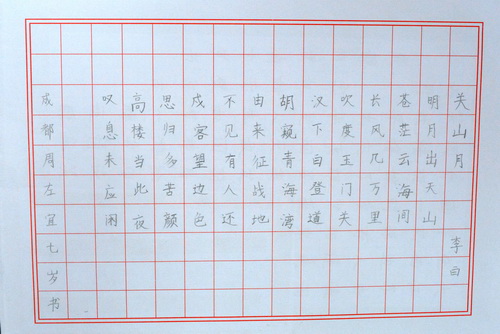 关山月 李白
明月出天山
苍茫云海间
长风几万里
吹度玉门关
汉下白登道
胡窥青海湾
由来征战地
不见有人还
戍客望边色
思归多苦颜
高楼当此夜
叹息未应闲
成都周左宜七岁书